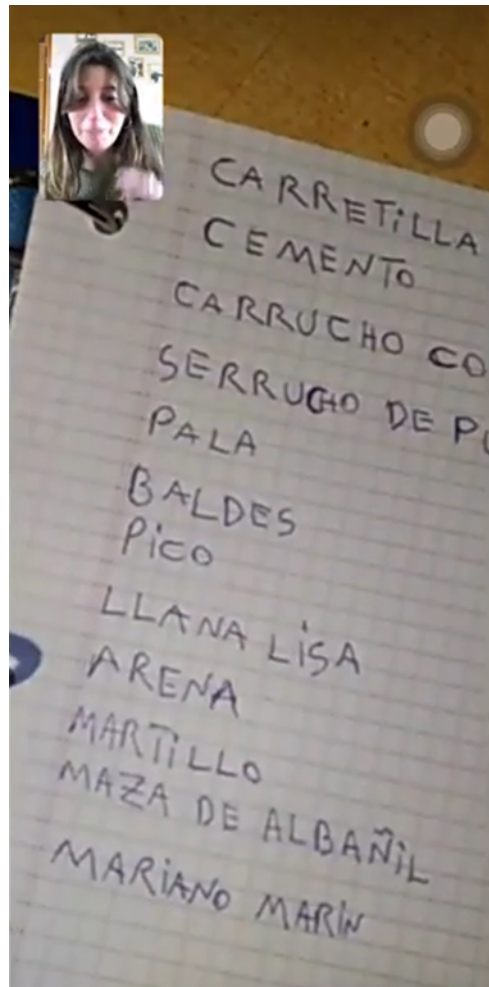 CARRETiLLA
CEMENTO
CARRUCHO CO
SERRUCHO DE P
PALA
BALDES
PiCO
LLANA LiSA
ARENA
MARTiLLO
MAZA DE ALBAÑiL
MARiANO MARiN